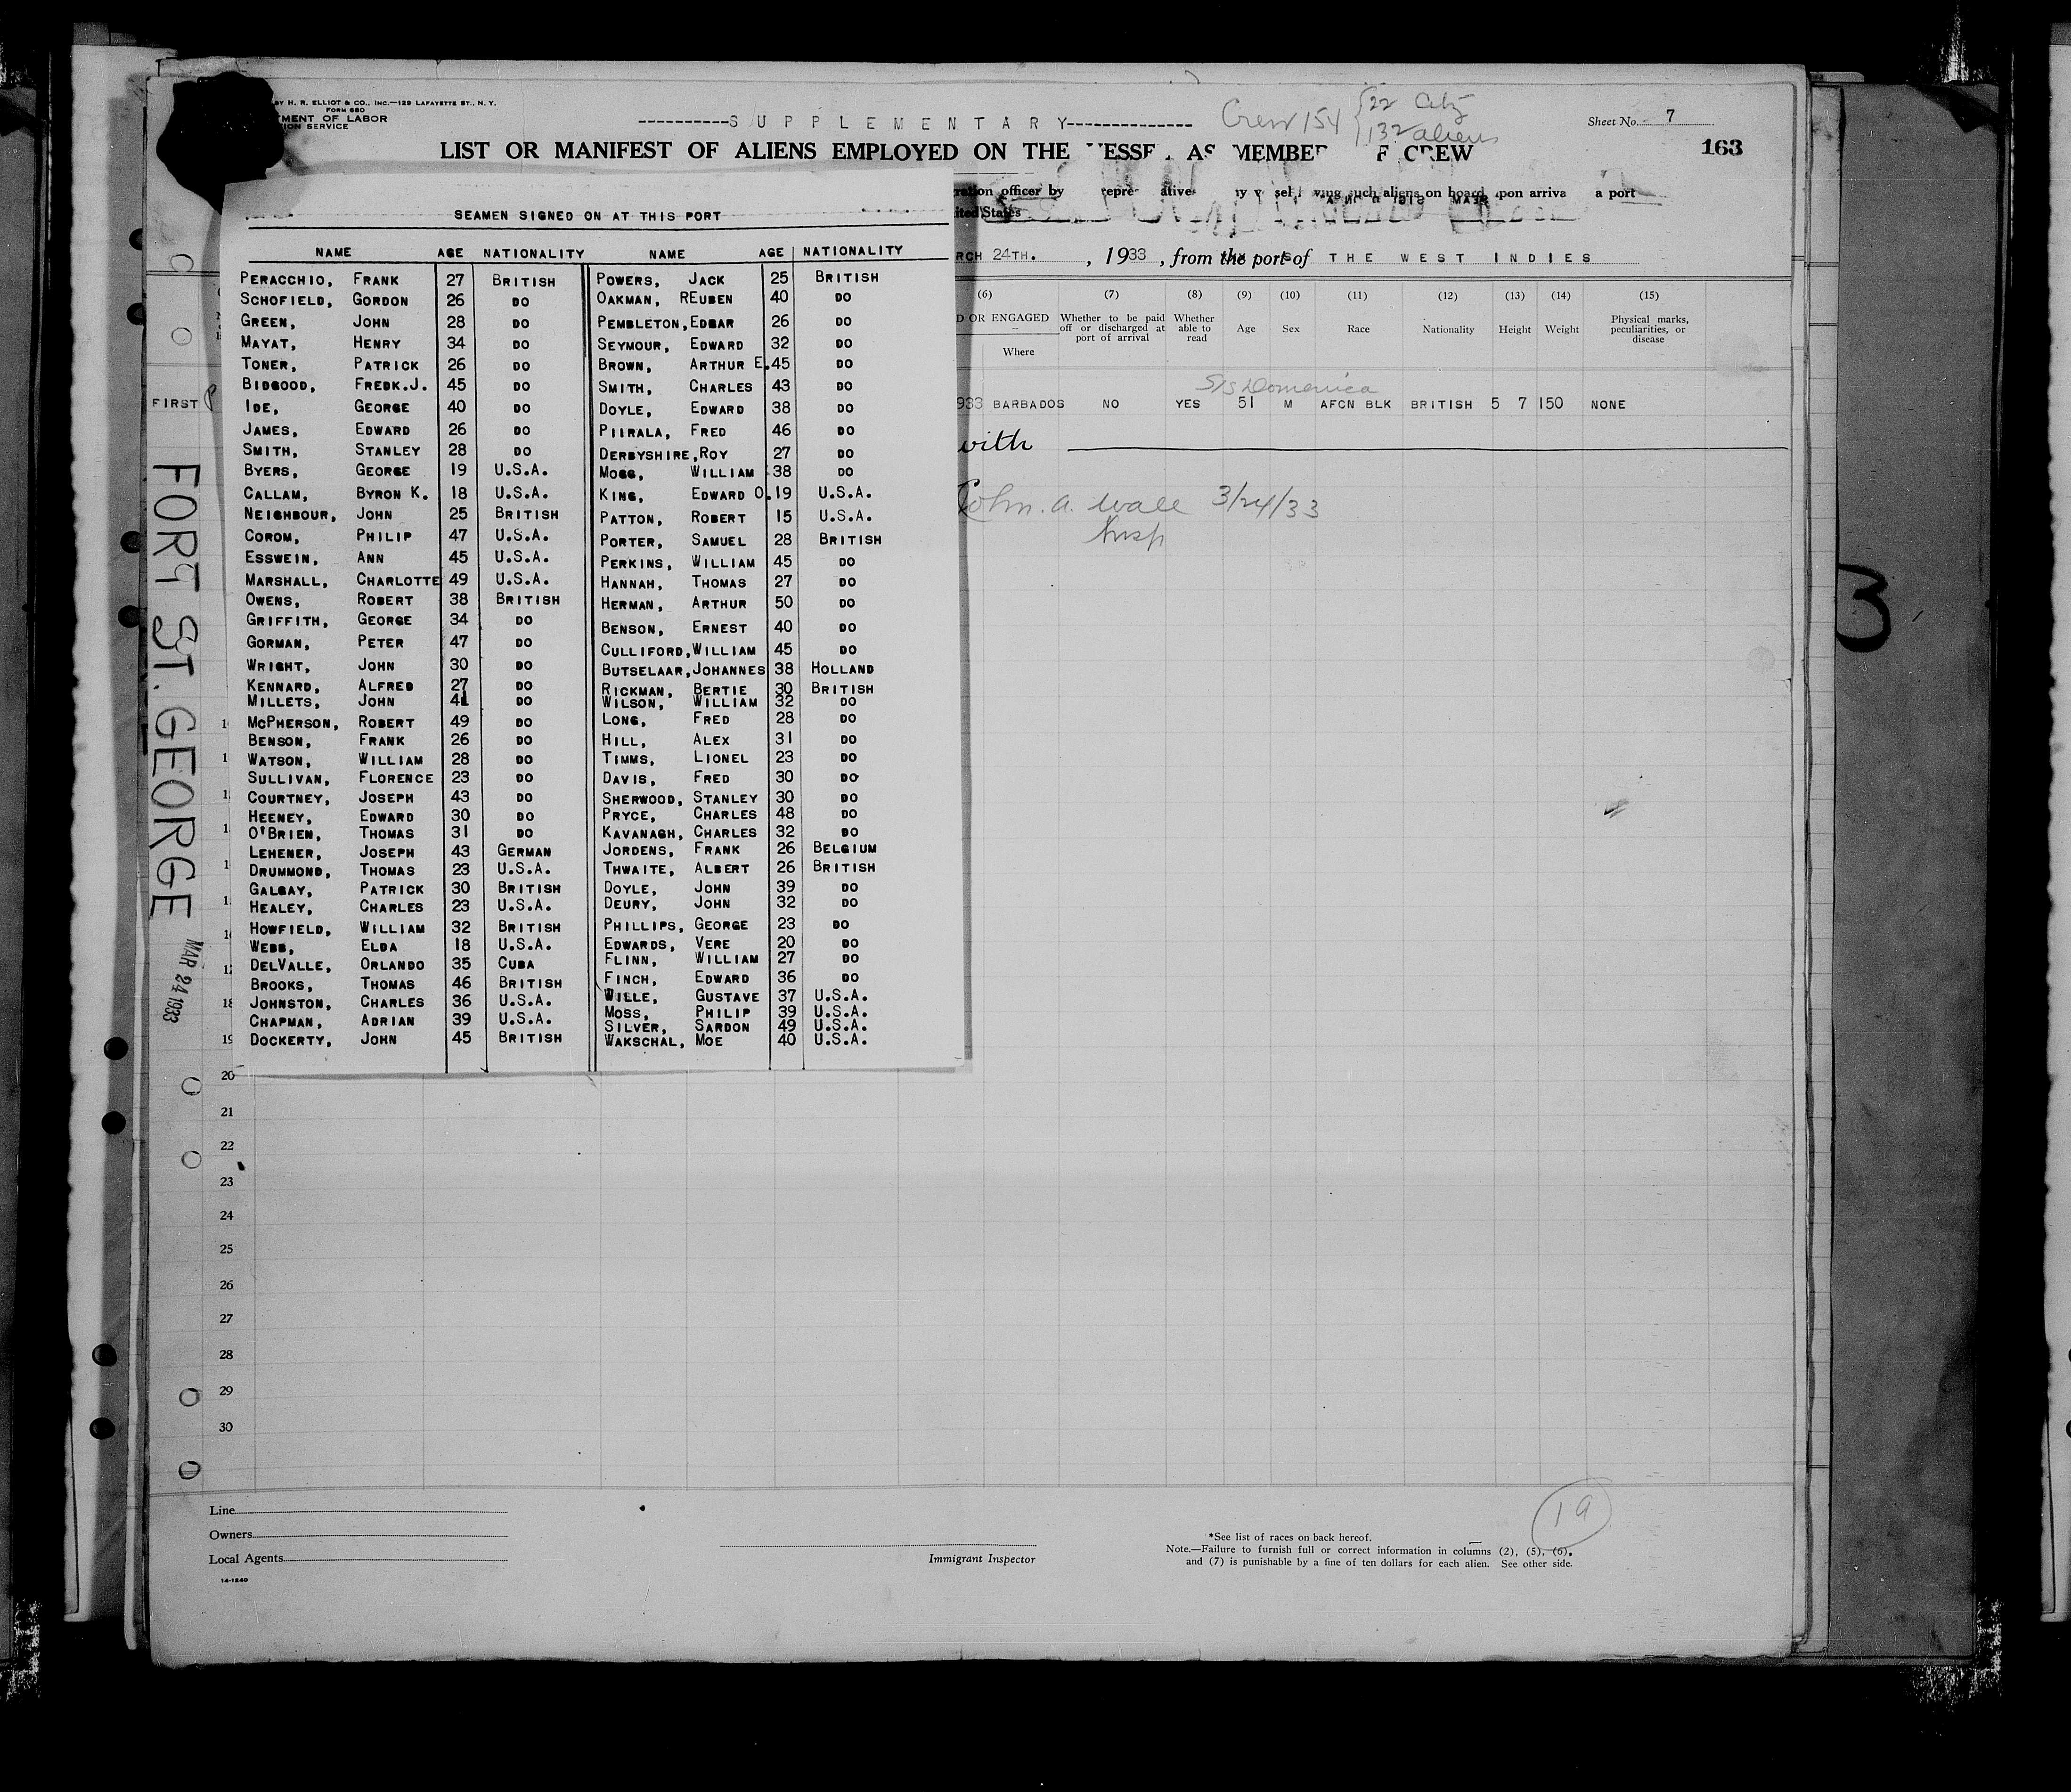 BY H. R. ELLIOT & CO., INC.—129 LAFAYETTE ST., N. Y.
FORM 680
MENT OF LABOR
ION SERVICE
----------SUPPLEMENTARY--------------
Crew 154 {22 Citz
132 aliens
Sheet No. 7
LIST OR MANIFEST OF ALIENS EMPLOYED ON THE VESSE AS MEMBER F CREW
163
ration officer by repre- atives ny v sel ving such aliens on board upon arriva a port
ited States
RCH 24TH. , 1933 , from the port of THE WEST INDIES
SEAMEN SIGNED ON AT THIS PORT
NAME AGE NATIONALITY NAME AGE NATIONALITY
PERACCHIO, FRANK 27 BRITISH POWERS, JACK 25 BRITISH
SCHOFIELD, GORDON 26 DO OAKMAN, REUBEN 40 DO
GREEN, JOHN 28 DO PEMBLETON, EDGAR 26 DO
MAYAT, HENRY 34 DO SEYMOUR, EDWARD 32 DO
TONER, PATRICK 26 DO BROWN, ARTHUR E. 45 DO
BIDGOOD, FREDK.J. 45 DO SMITH, CHARLES 43 DO
IDE, GEORGE 40 DO DOYLE, EDWARD 38 DO
JAMES, EDWARD 26 DO PIIRALA, FRED 46 DO
SMITH, STANLEY 28 DO DERBYSHIRE, ROY 27 DO
BYERS, GEORGE 19 U.S.A. MOGG, WILLIAM 38 DO
CALLAM, BYRON K. 18 U.S.A. KING, EDWARD O. 19 U.S.A.
NEIGHBOUR, JOHN 25 BRITISH PATTON, ROBERT 15 U.S.A.
COROM, PHILIP 47 U.S.A. PORTER, SAMUEL 28 BRITISH
ESSWEIN, ANN 45 U.S.A. PERKINS, WILLIAM 45 DO
MARSHALL, CHARLOTTE 49 U.S.A. HANNAH, THOMAS 27 DO
OWENS, ROBERT 38 BRITISH HERMAN, ARTHUR 50 DO
GRIFFITH, GEORGE 34 DO BENSON, ERNEST 40 DO
GORMAN, PETER 47 DO CULLIFORD, WILLIAM 45 DO
WRIGHT, JOHN 30 DO BUTSELAAR, JOHANNES 38 HOLLAND
KENNARD, ALFRED 27 DO RICKMAN, BERTIE 30 BRITISH
MILLETS, JOHN 41 DO WILSON, WILLIAM 32 DO
MCPHERSON, ROBERT 49 DO LONG, FRED 28 DO
BENSON, FRANK 26 DO HILL, ALEX 31 DO
WATSON, WILLIAM 28 DO TIMMS, LIONEL 23 DO
SULLIVAN, FLORENCE 23 DO DAVIS, FRED 30 DO
COURTNEY, JOSEPH 43 DO SHERWOOD, STANLEY 30 DO
HEENEY, EDWARD 30 DO PRYCE, CHARLES 48 DO
O'BRIEN, THOMAS 31 DO KAVANAGH, CHARLES 32 DO
LEHENER, JOSEPH 43 GERMAN JORDENS, FRANK 26 BELGIUM
DRUMMOND, THOMAS 23 U.S.A. THWAITE, ALBERT 26 BRITISH
GALGAY, PATRICK 30 BRITISH DOYLE, JOHN 39 DO
HEALEY, CHARLES 23 U.S.A. DEURY, JOHN 32 DO
HOWFIELD, WILLIAM 32 BRITISH PHILLIPS, GEORGE 23 DO
WEBB, ELDA 18 U.S.A. EDWARDS, VERE 20 DO
DELVALLE, ORLANDO 35 CUBA FLINN, WILLIAM 27 DO
BROOKS, THOMAS 46 BRITISH FINCH, EDWARD 36 DO
JOHNSTON, CHARLES 36 U.S.A. WILLE, GUSTAVE 37 U.S.A.
CHAPMAN, ADRIAN 39 U.S.A. MOSS, PHILIP 39 U.S.A.
DOCKERTY, JOHN 45 BRITISH SILVER, SARDON 49 U.S.A.
WAKSCHAL, MOE 40 U.S.A.
(6) (7) (8) (9) (10) (11) (12) (13) (14) (15)
D OR ENGAGED
Where
Whether to be paid off or discharged at port of arrival
Whether able to read
Age Sex Race Nationality Height Weight
Physical marks, peculiarities, or disease
S/S Domenica
FIRST
933 BARBADOS NO YES 51 M AFCN BLK BRITISH 5 7 150 NONE
with
John. A. Wall 3/24/33
Insp
FORT ST. GEORGE
MAR 24 1933
3
18
19
20
21
22
23
24
25
26
27
28
29
30
19
Line
Owners
Local Agents
14-1240
Immigrant Inspector
*See list of races on back hereof.
Note.—Failure to furnish full or correct information in columns (2), (5), (6),
and (7) is punishable by a fine of ten dollars for each alien. See other side.